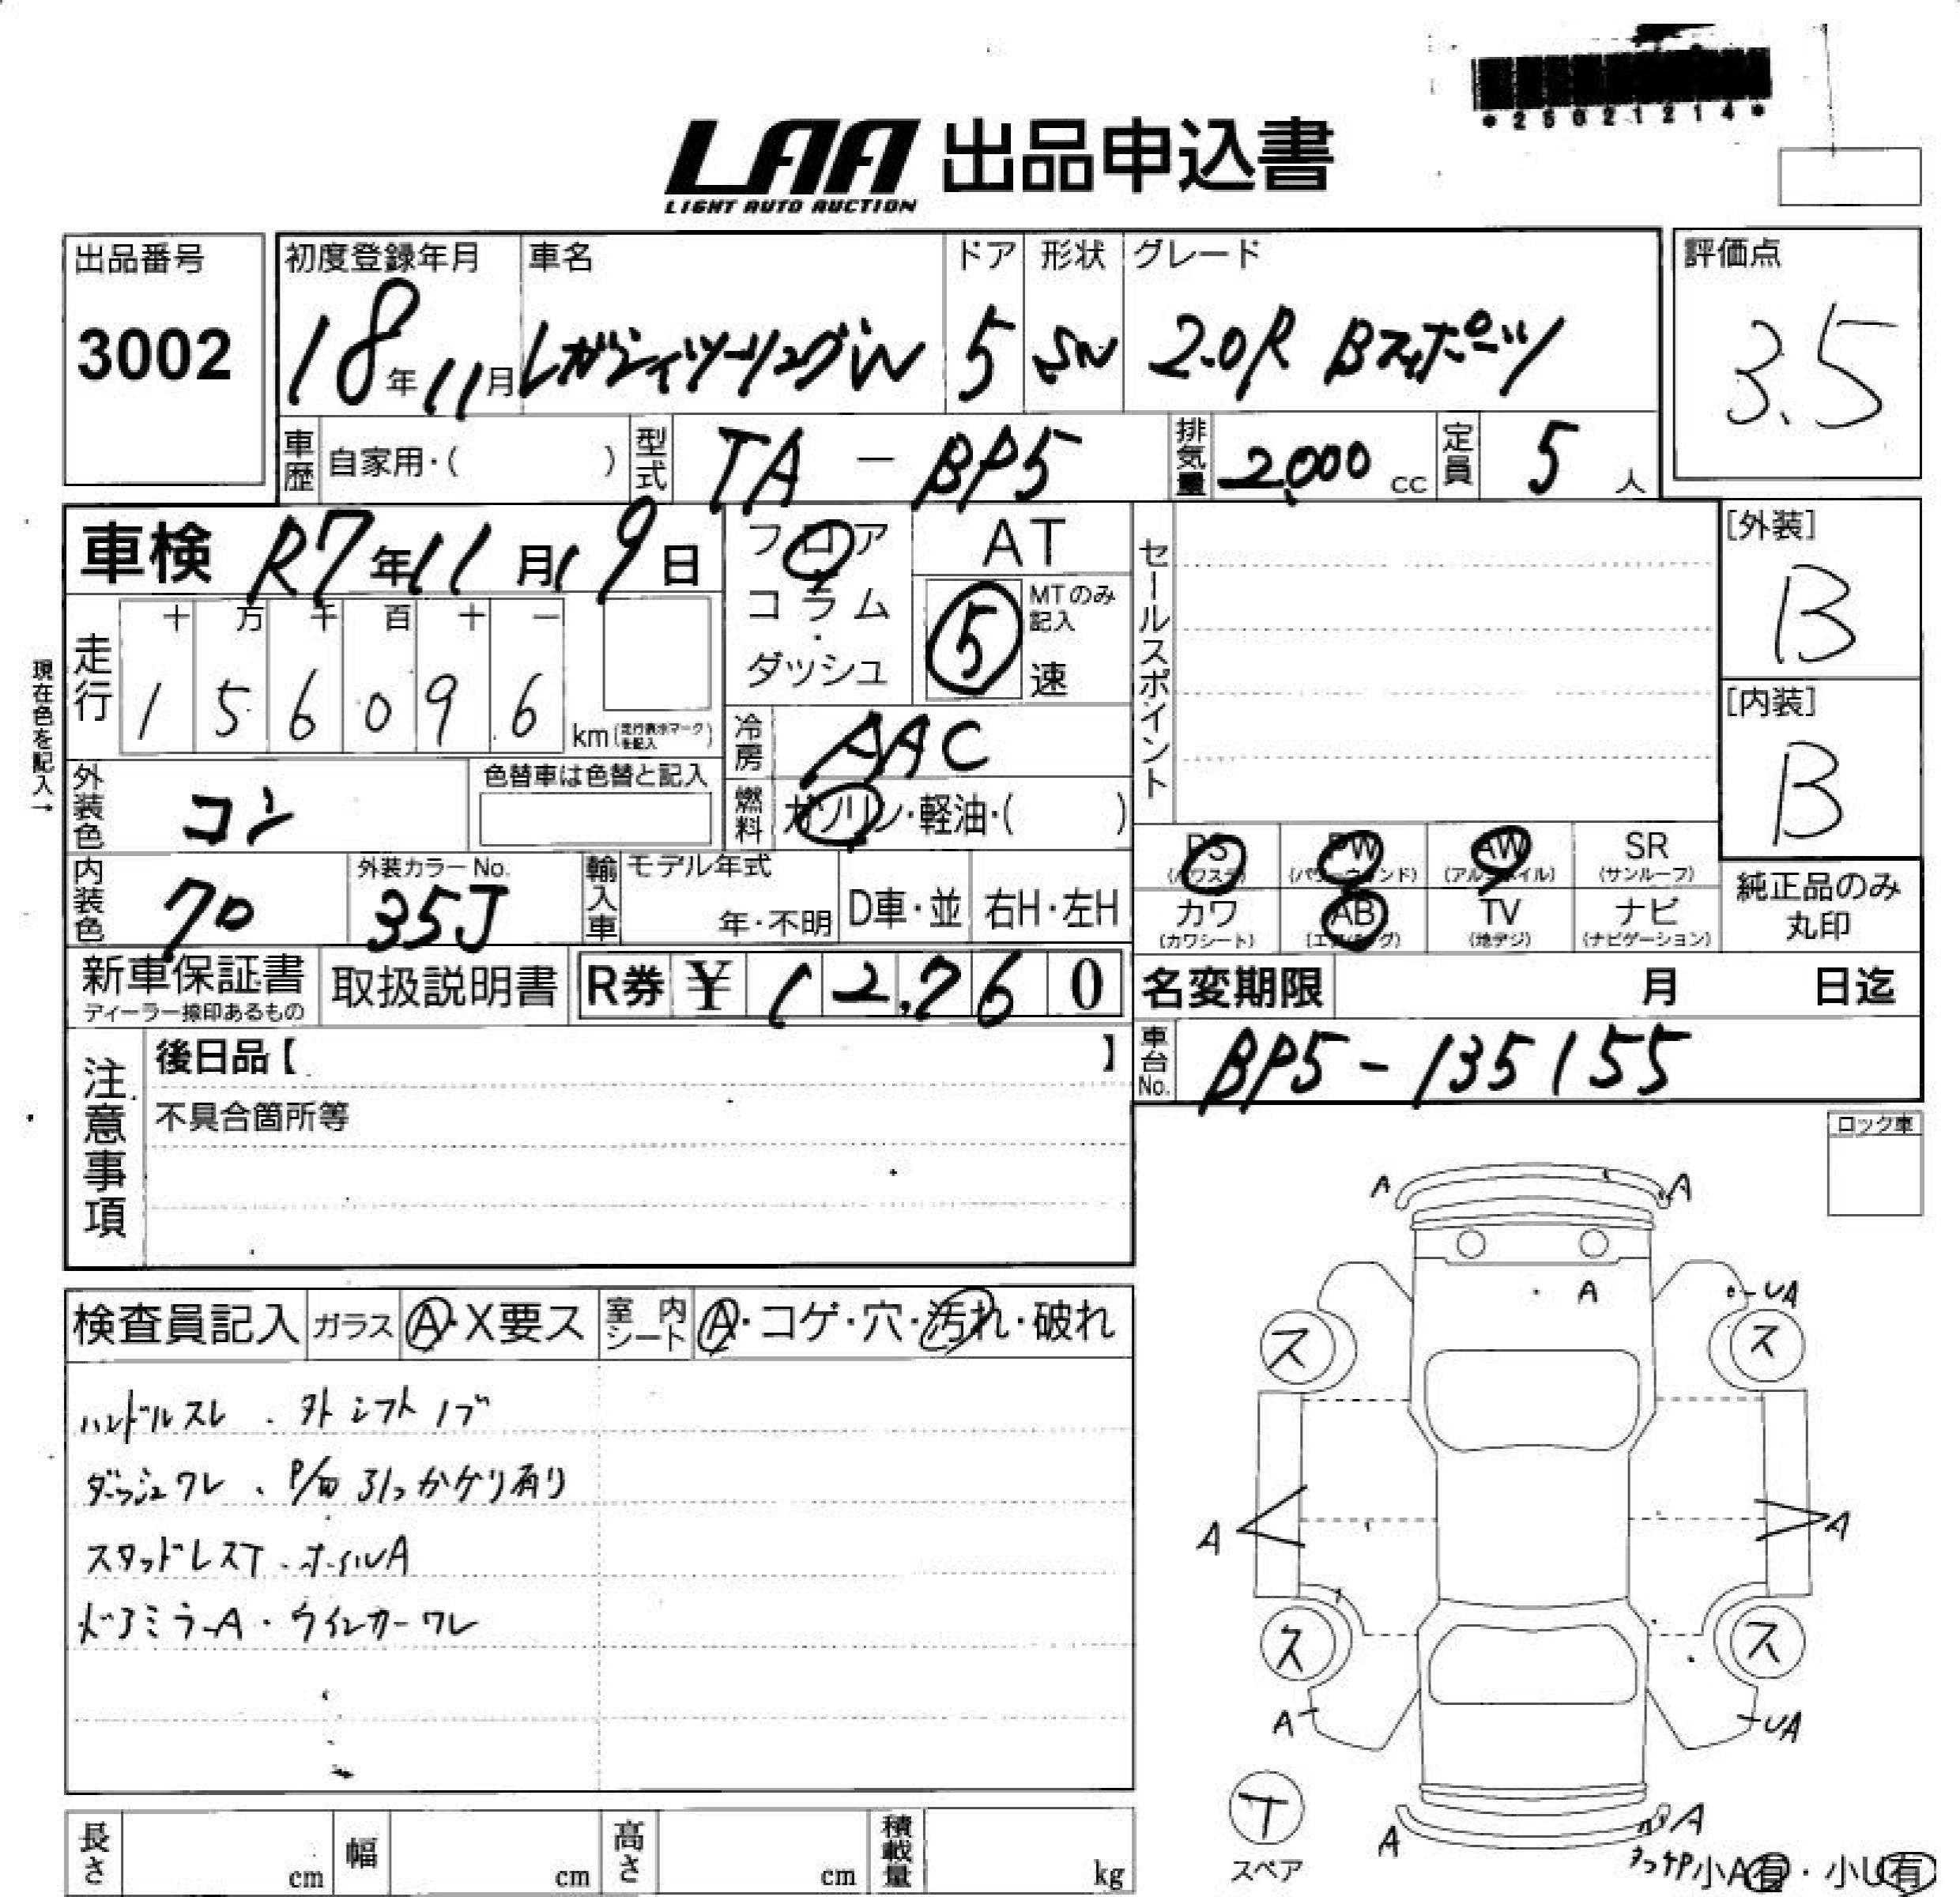 *25021214*
LAA 出品申込書
LIGHT AUTO AUCTION
出品番号
3002
初度登録年月
18年11月
車名
レガシィツーリングW
ドア
5
形状
SW
グレード
2.0R Bスポーツ
評価点
3.5
車歴 自家用・( )
型式 TA - BP5
排気量 2,000 cc
定員 5 人
車検 R7年11月19日
フロア
コラム
・
ダッシュ
AT
5 MTのみ記入
速
セールスポイント
[外装]
B
[内装]
B
現在色を記入→
走行
十 万 千 百 十 一
1 5 6 0 9 6 km(走行表示マークを記入)
冷房 AAC
外装色 コン
色替車は色替と記入
燃料 ガソリン・軽油・( )
内装色
外装カラーNo.
35J
輸入車
モデル年式
年・不明
D車・並
右H・左H
PS
(パワステ)
PW
(パワーウィンド)
AW
(アルミホイル)
SR
(サンルーフ)
カワ
(カワシート)
AB
(エアバッグ)
TV
(地デジ)
ナビ
(ナビゲーション)
純正品のみ
丸印
新車保証書
ディーラー捺印あるもの
取扱説明書
R券 ¥ 12,760
名変期限 月 日迄
車台No. BP5-135155
注意事項
後日品【 】
不具合箇所等
ロック車
検査員記入 ガラス A・X要ス 室内シート A・コゲ・穴・汚れ・破れ
ハンドルスレ、外シフトノブ
ダッシュワレ、
スタッドレスT、ホイルA
ドアミラーA・ウインカーワレ
A A
A UA
ス ス
A A
ス ス
A UA
T
スペア
A A
小A有・小U有
長さ cm 幅 cm 高さ cm 積載量 kg